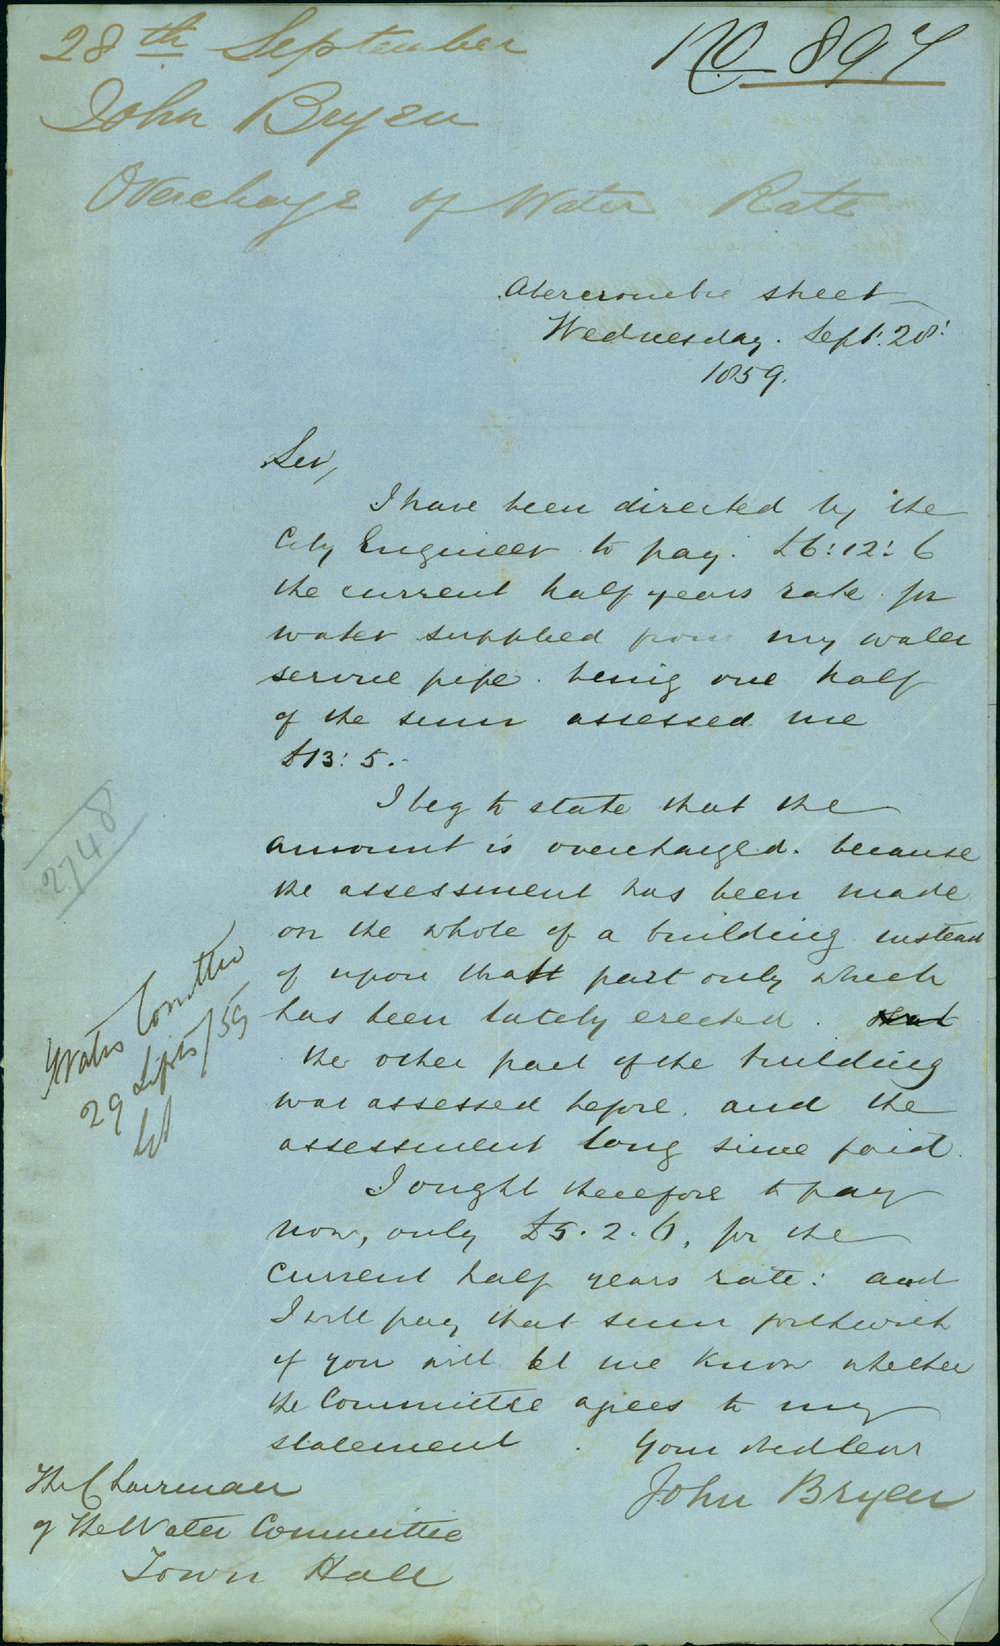 28th September
No 897
John Bryen
Overcharge of Water Rate
Abercrombie Street
Wednesday. Sept: 28:
1859.
Sir,
I have been directed by the
City Engineer to pay. £6:12:6
the current half years rate for
water supplied from my water
service pipe. being one half
of the sum assessed me
£13:5.-
I beg to state that the
amount is overcharged. because
the assessment has been made
on the whole of a building instead
of upon that part only which
has been lately erected.
the other part of the building
was assessed before. and the
assessment long since paid.
I ought therefore to pay
now, only £5.2.6, for the
current half years rate: and
I will pay that sum forthwith
if you will let me know whether
the Committee agrees to my
statement. Your obedient
John Bryen
The Chairman
of the Water Committee
Town Hall
2748
Water Comittee
29 Septr/59